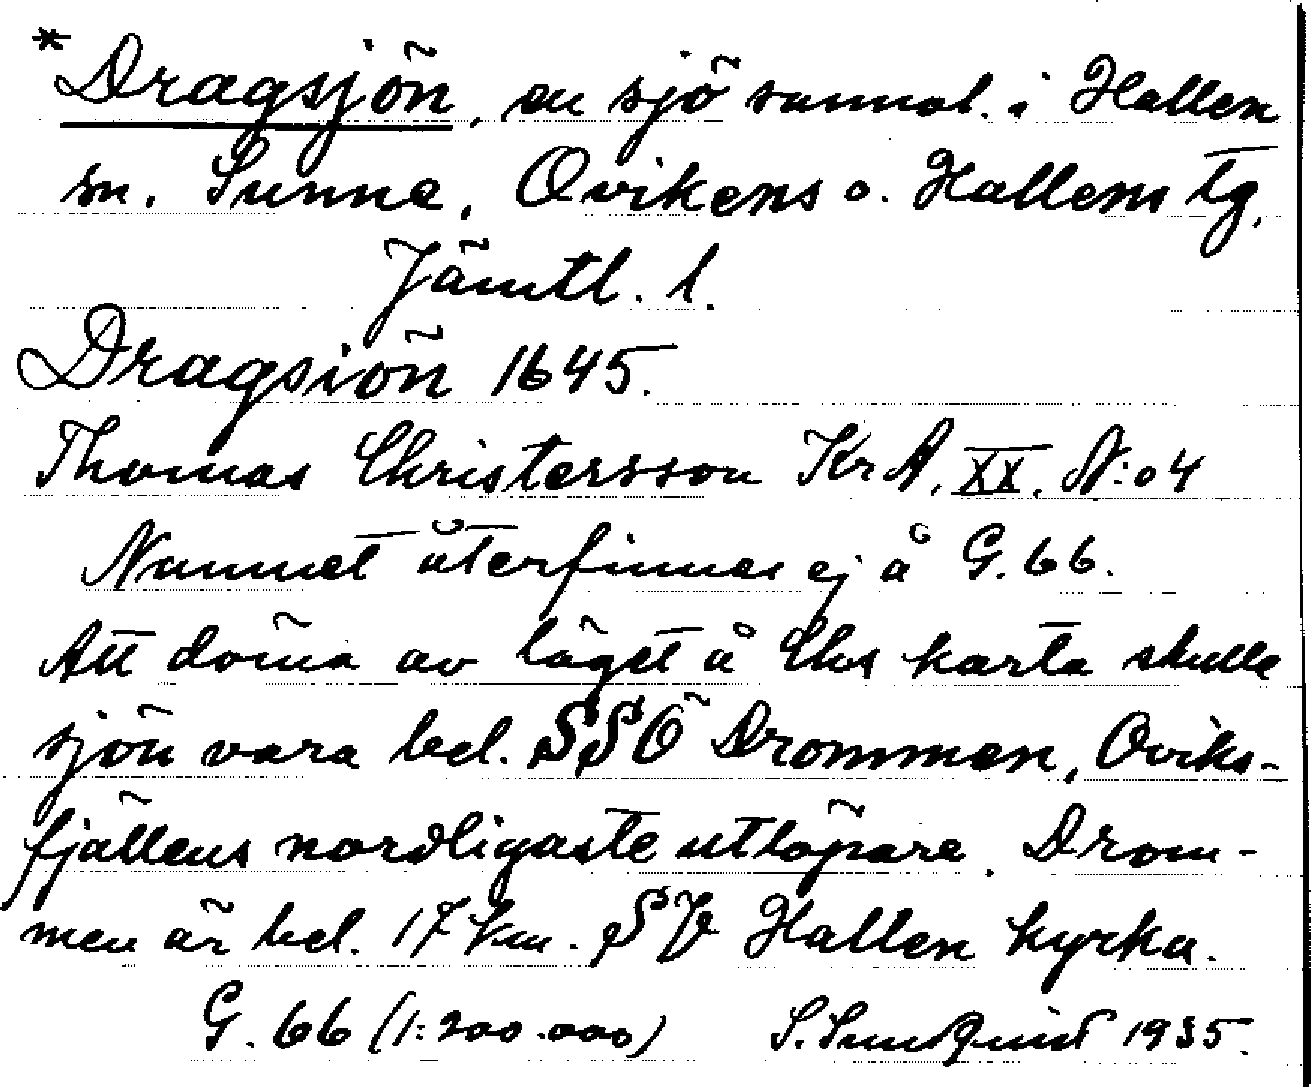 *Dragsjön, en sjö sannol. i Hallen
sn. Sunne, Ovikens o. Hallens tg,
Jämtl. l.
Dragsiön 1645.
Thomas Christersson KrA, XX, N:o 4
Namnet återfinnes ej å G. 66.
Att döma av läget å Chs karta skulle
sjön vara bel. SSÖ Drommen, Oviks-
fjällens nordligaste utlöpare. Drom-
men är bel. 17 km. SV Hallen kyrka.
G. 66 (1:200.000) S. Sundquist 1935.